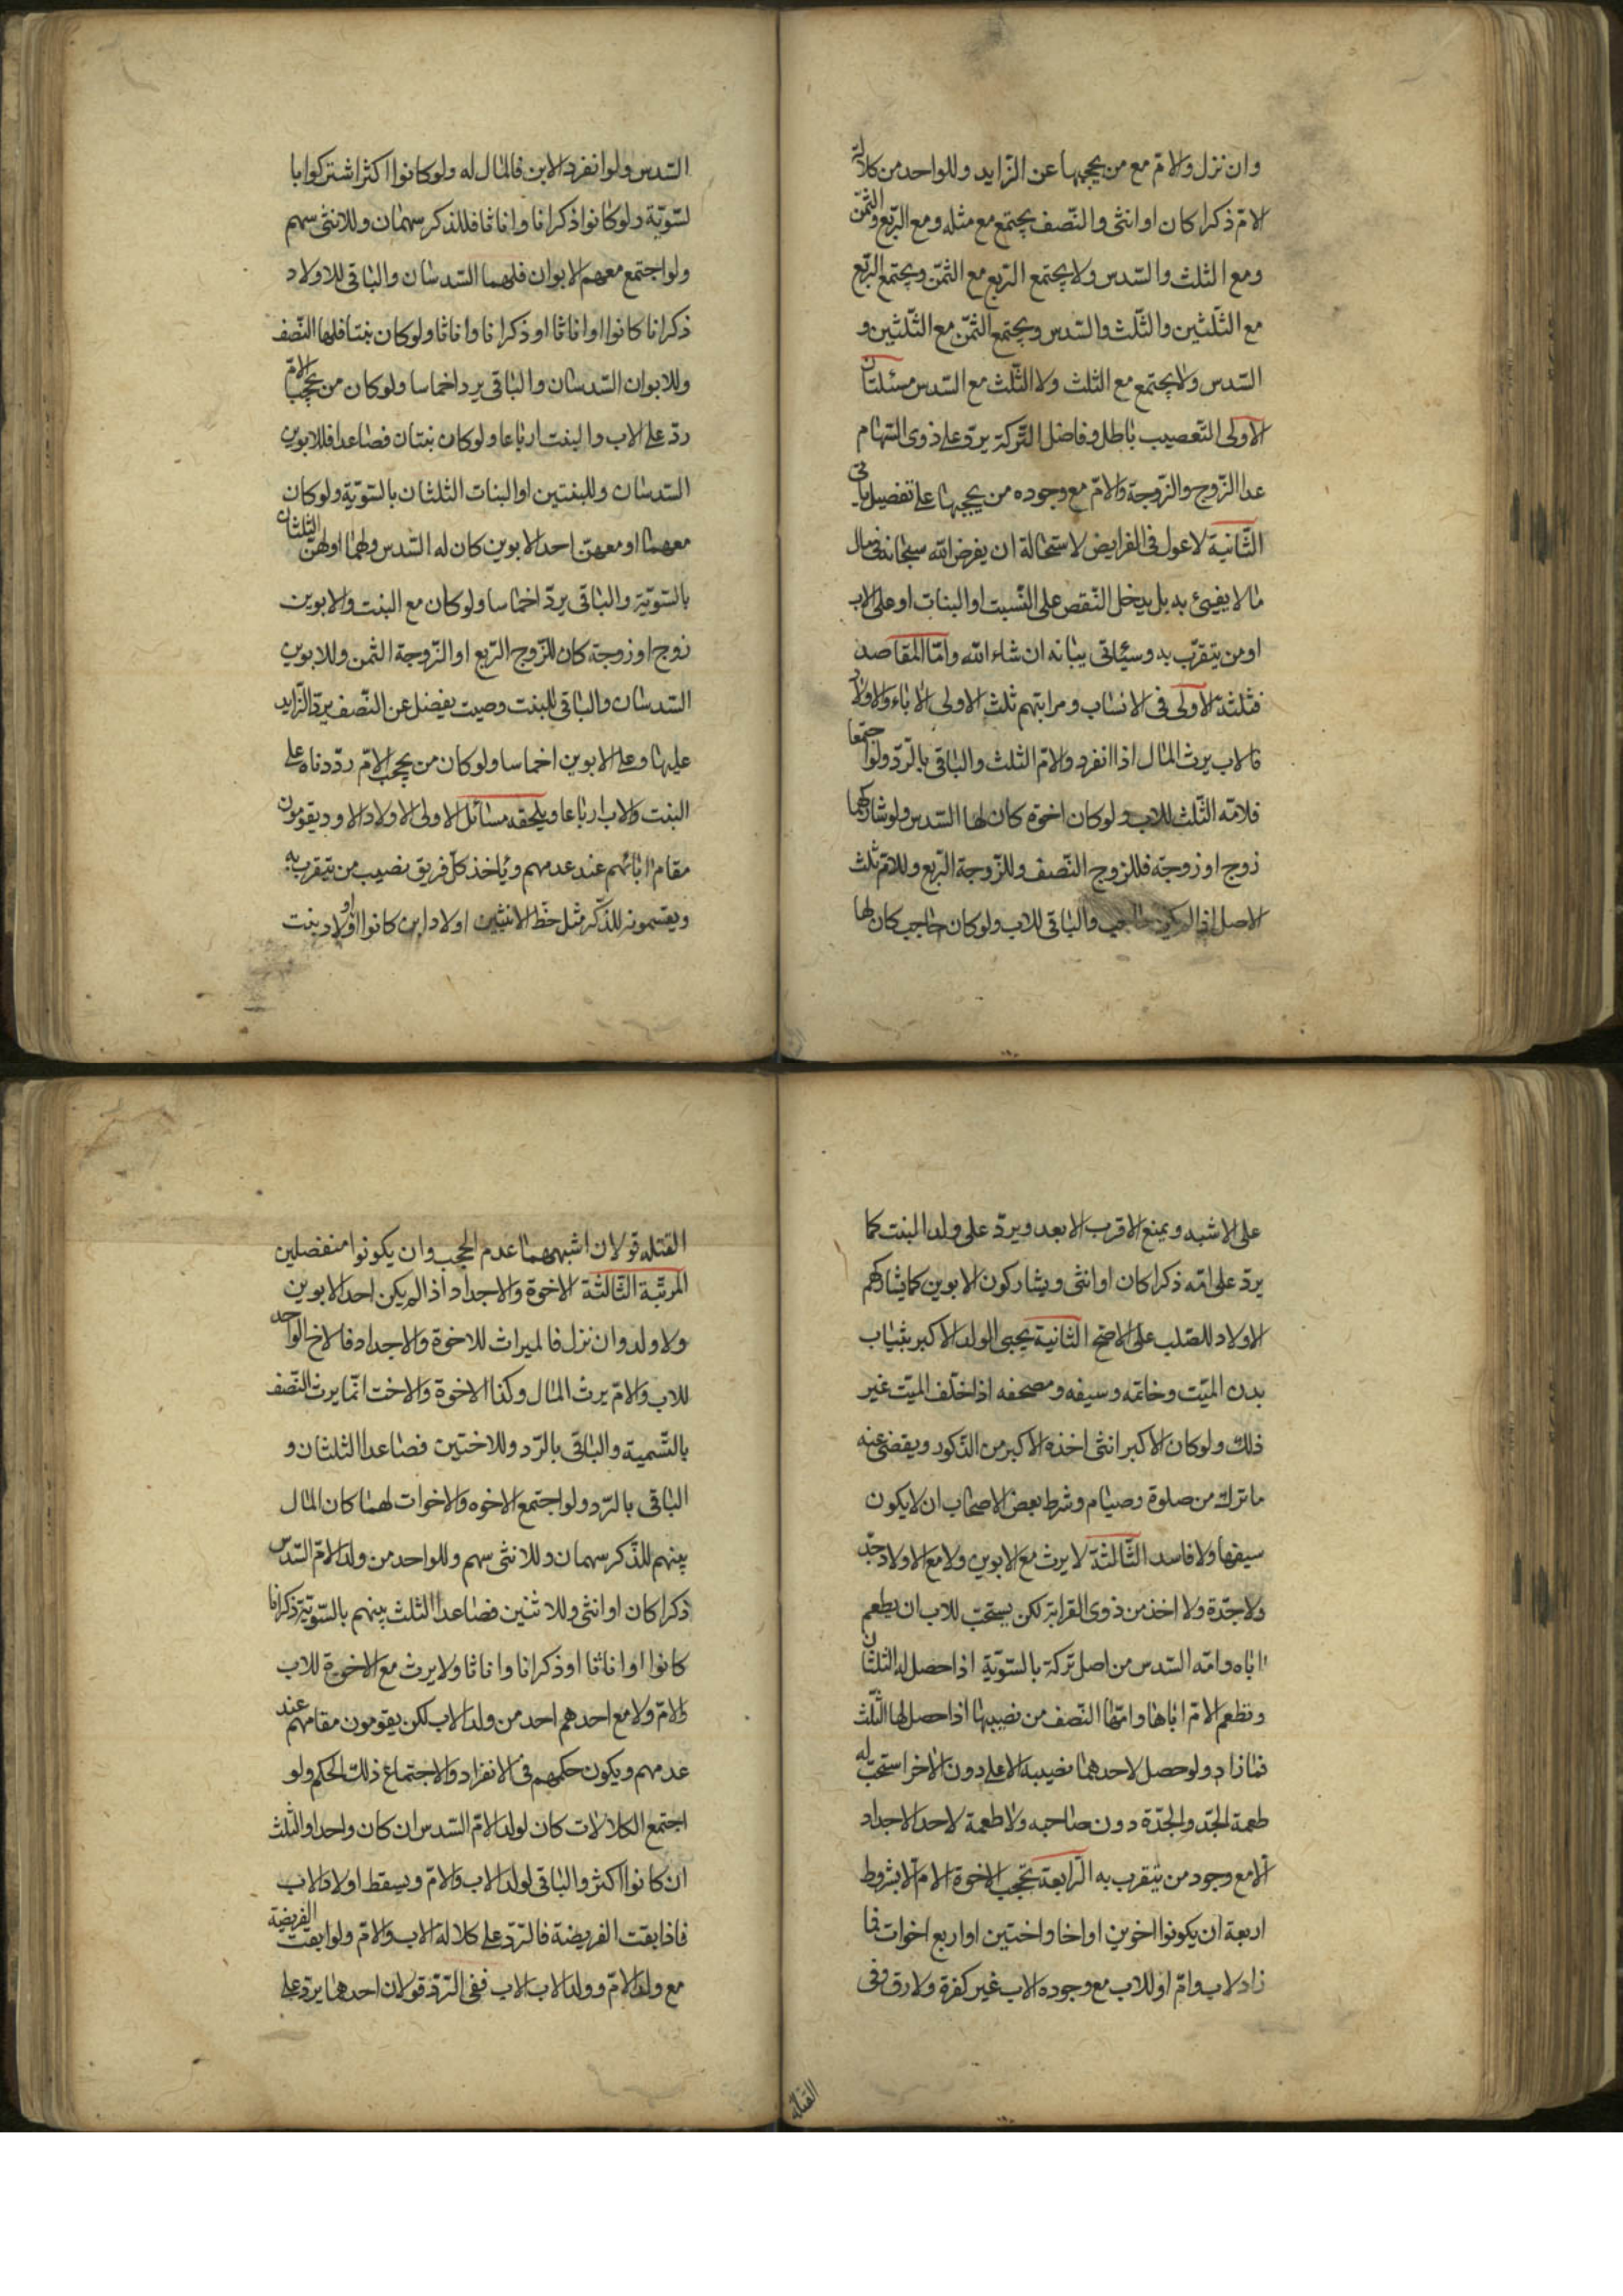 وان نزل والامّ مع من يحجبها عن الزّايد وللواحد من كلالة
الامّ ذكرا كان او انثى والنّصف يجتمع مع مثله ومع الرّبع والثّمن
ومع الثلث والسّدس ولا يجتمع الرّبع مع الثّمن ويجتمع الرّبع
مع الثّلثين والثّلث والسّدس ويجتمع الثّمن مع الثّلثين و
السّدس ولا يجتمع مع الثلث ولا الثّلث مع السّدس مسئلتان
الاولى التّعصيب باطل وفاضل التّركة يردّ على ذوى السّهام
عدا الزّوج والزّوجة والامّ مع وجوده من يحجبها على تفصيل ياتى
الثّانية لا عول فى الفرايض لاستحالة ان يفرض الله سبحانه فى مال
ما لا يفىئ به بل يدخل النّقص على البنت او البنات او على الاب
او من يتقرّب به وسيئاتى بيانه ان شاء الله وامّا المقاصد
فثلثة الاولى فى الانساب ومراتبهم ثلث الاولى الاباء والاولاد
فالاب يرث المال اذا انفرد والامّ الثلث والباقى بالرّدّ ولو اجتمعا
فلامّه الثّلث للاب ولو كان اخوة كان لها السّدس ولو شاركهما
زوج او زوجة فللزوج النّصف وللزّوجة الرّبع وللامّ ثلث
الاصل اذا لم يكن حاجب والباقى للاب ولو كان حاجب كان لها
السّدس ولو انفرد الابن فالمال له ولو كانوا اكثر اشتركوا با
لسّويّة ولو كانوا ذكرانا واناثا فللذكر سهمان وللانثى سهم
ولو اجتمع معهم الابوان فلهما السّدسان والباقى للاولاد
ذكرانا كانوا او اناثا او ذكرانا واناثا ولو كان بنتا فلها النّصف
وللابوان السّدسان والباقى يرد اخماسا ولو كان من يحجب الامّ
ردّ على الاب والبنت ارباعا ولو كان بنتان فصاعدا فللابوين
السّدسان وللبنتين او البنات الثلثان بالسّويّة ولو كان
معهما او معهنّ احد الابوين كان له السّدس ولهما او لهنّ الثلثان
بالسّويّة والباقى يردّ اخماسا ولو كان مع البنت والابوين
زوج او زوجة كان للزّوج الرّبع او الزّوجة الثمن وللابوين
السّدسان والباقى للبنت وحيث يفضل عن النّصف يردّ الزّايد
عليها وعلى الابوين اخماسا ولو كان من يحجب الامّ رددناه على
البنت والاب ارباعا ويلحقه مسائل الاولى الاولاد الاود يقومون
مقام ابائهم عند عدمهم ويأخذ كلّ فريق نصيب من يتقرب به
ويقسمونه للذّكر مثل حظّ الانثيين اولاد ابن كانوا او اولاد بنت
على الاشبه ويمنع الاقرب الابعد ويردّ على ولد البنت كما
يردّ على امّه ذكرا كان او انثى ويشاركون الابوين كما يشاركهم
الاولاد للصّلب على الاصّح الثانية يحبى الولد الاكبر بثياب
بدن الميّت وخاتمه وسيفه ومصحفه اذا خلّف الميّت غير
ذلك ولو كان الاكبر انثى اخذه الاكبر من الذّكور ويقضى عنه
ما ترك من صلوة وصيام وشرط بعض الاصحاب ان لا يكون
سيفها ولا فاسد الثّالثة لا يرث مع الابوين ولا مع الاولاد جدّ
ولا جدّة ولا اخذ من ذوى القرابة لكن يستحبّ للاب ان يطعم
اباه وامّه السّدس من اصل تركة بالسّويّة اذا حصل له الثلثان
وتطعم الامّ اباها وامّها النّصف من نصيبها اذا حصل لها الثّلث
فما زاد ولو حصل لاحدهما نصيبه الاعلى دون الاخر استحبّ له
طعمة الجّد والجّدة دون صاحبه ولا طعمة لاحد الاجداد
الّا مع وجود من يتقرب به الرّابعة تحجب الاخوة الامّ الّا بشروط
اربعة ان يكونوا اخوين او اخا واختين او اربع اخوات فما
زاد لاب وامّ او للاب مع وجوده الاب غير كفرة ولا رق وفى
القتله
القتله قولان اشبههما عدم الحجب وان يكونوا منفصلين
المرتبة الثّالثة الاخوة والاجداد اذا لم يكن احد الابوين
ولا ولد وان نزل فالميراث للاخوة والاجداد فالاخ الواحد
للاب والامّ يرث المال وكذا الاخوة والاخت انّما يرث النّصف
بالتّسمية والباقى بالرّد وللاختين فصاعدا الثلثان و
الباقى بالرّد ولو اجتمع الاخوه والاخوات لهما كان المال
بينهم للذّكر سهمان وللانثى سهم وللواحد من ولد الامّ السّدس
ذكرا كان او انثى وللاثنين فصاعدا الثلث بينهم بالسّويّة ذكرانا
كانوا او اناثا او ذكرانا واناثا ولا يرث مع الاخوة للاب
والامّ ولا مع احدهم احد من ولد الاب لكن يقومون مقامهم عند
عدمهم ويكون حكمهم فى الانفراد والاجتماع ذلك الحكم ولو
اجتمع الكلالات كان لولد الامّ السّدس ان كان واحدا والثّلث
ان كانوا اكثر والباقى لولد الاب والامّ ويسقط اولاد الاب
فاذا بقت الفريضة فالرّدّ على كلالة الاب والامّ ولو ابقت الفريضة
مع ولد الامّ وولد الاب الاب ففى الرّدّ قولان احدهما يردّ على